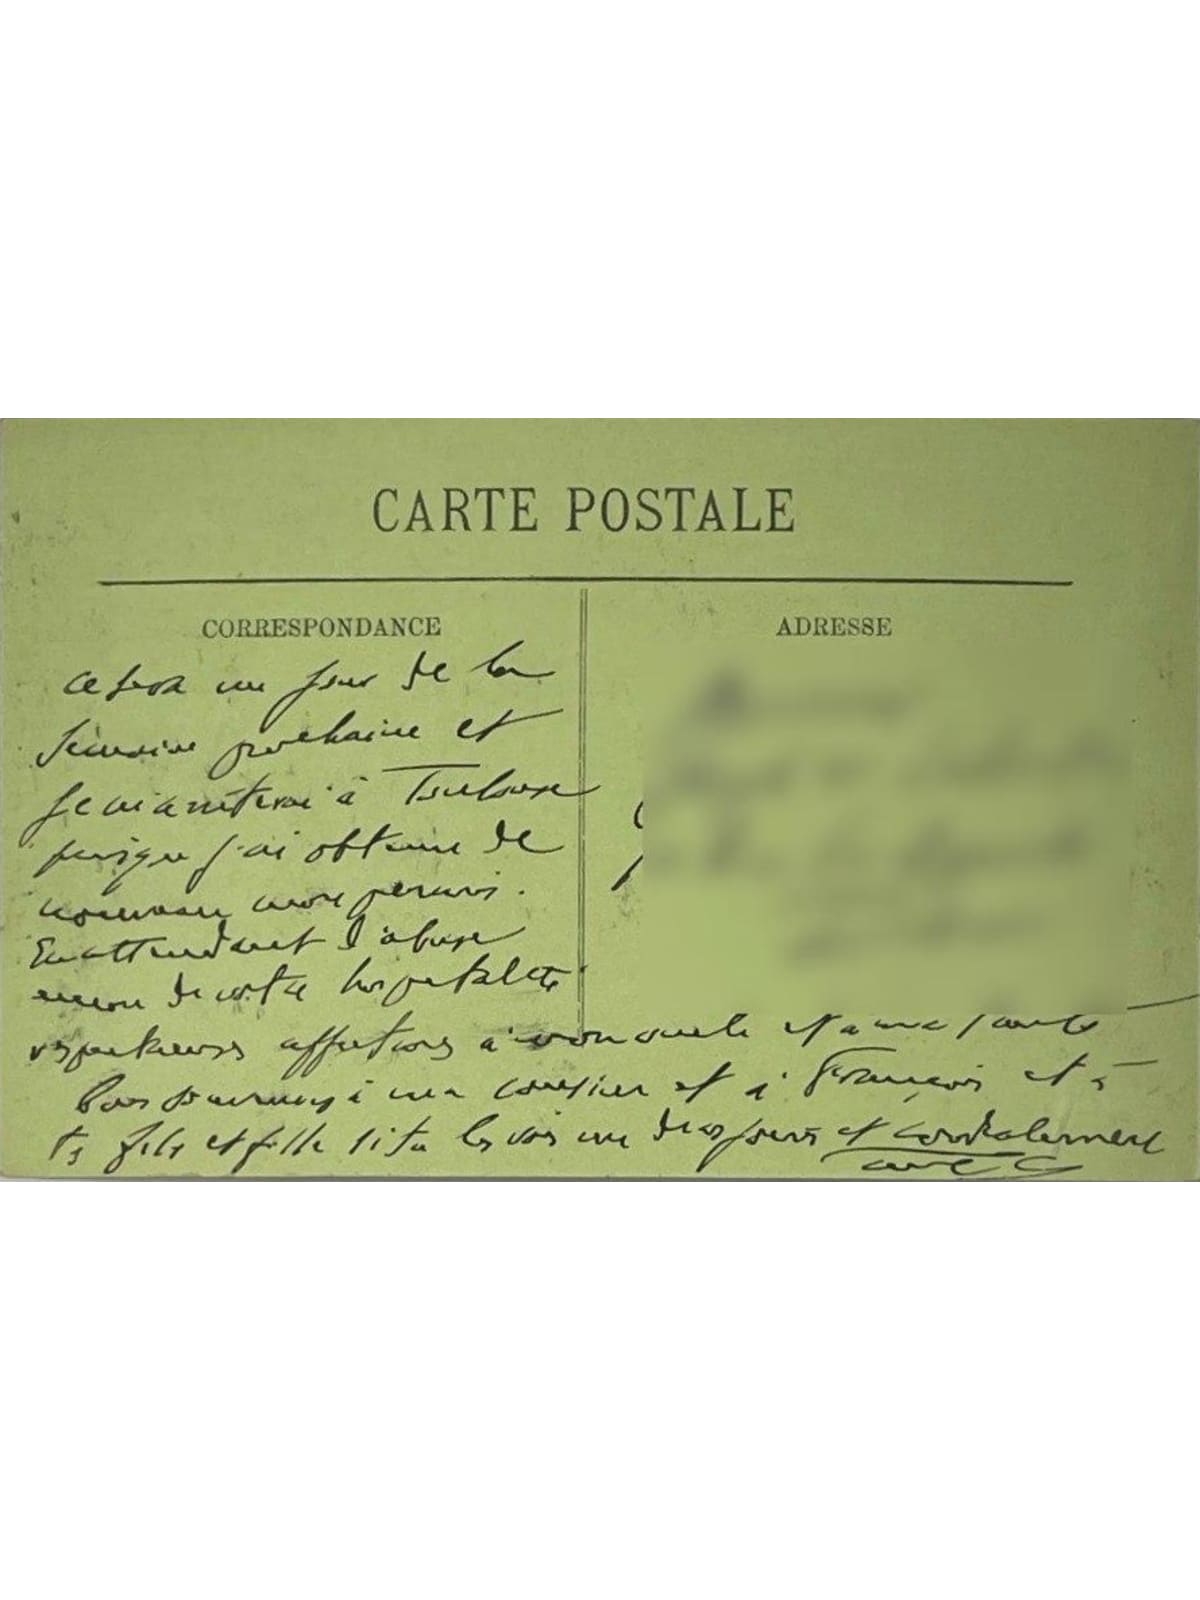 CARTE POSTALE
CORRESPONDANCE
ADRESSE
ce sera un jour de la
semaine prochaine et
je m'arrêterai à Toulouse
puisque j'ai obtenu de
nouveau mon permis.
En attendant d'abuser
encore de votre hospitalité
respectueuses affections à mon oncle et à ma tante
Bons souvenirs à ma cousine et à François et à
ts fils et fille si tu les vois un de ces jours et cordialement